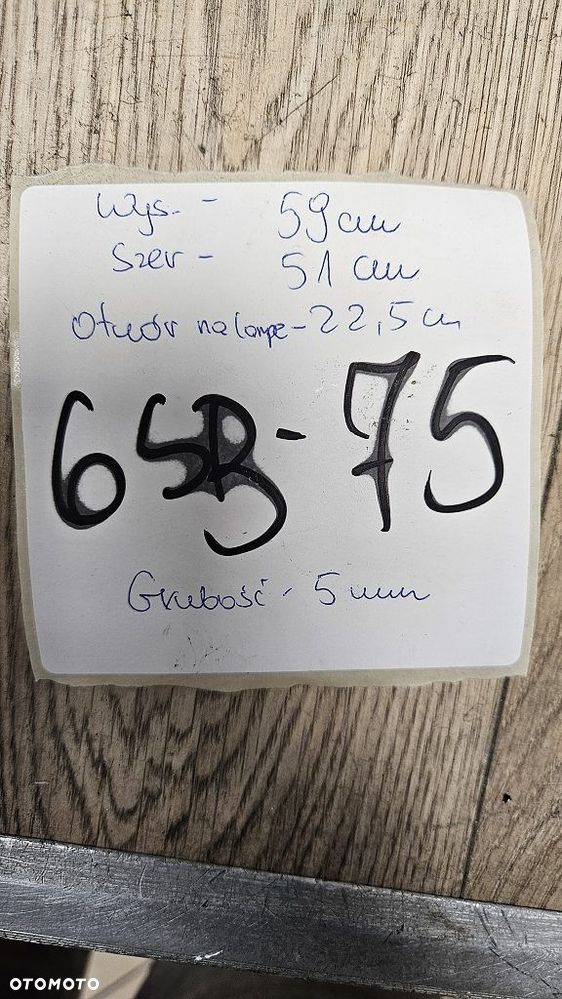 Wys. - 59 cm
Szer - 51 cm
Otwór na lampe - 22,5 cm
6SB-75
Grubość - 5 mm
OTOMOTO